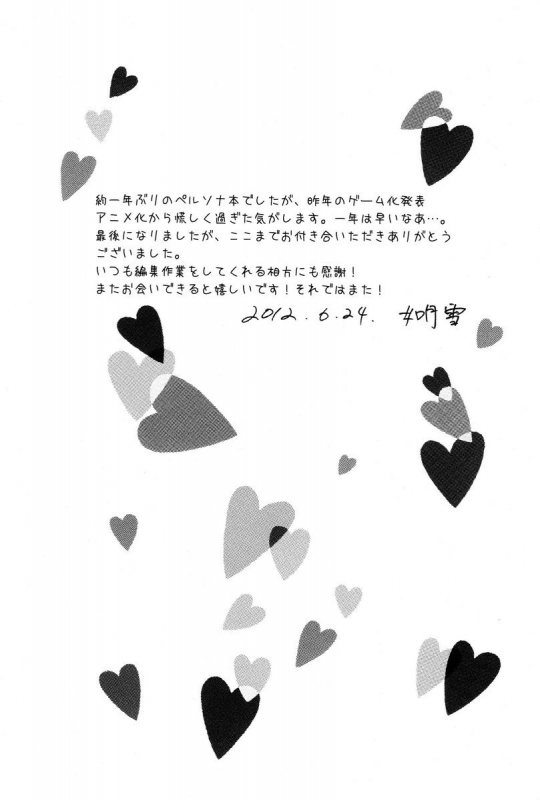 約一年ぶりのペルソナ本でしたが、昨年のゲーム化発表
アニメ化から慌しく過ぎた気がします。一年は早いなあ…。
最後になりましたが、ここまでお付き合いただきありがとう
ございました。
いつも編集作業をしてくれる相方にも感謝！
またお会いできると嬉しいです！それではまた！
2012.6.24. 雪